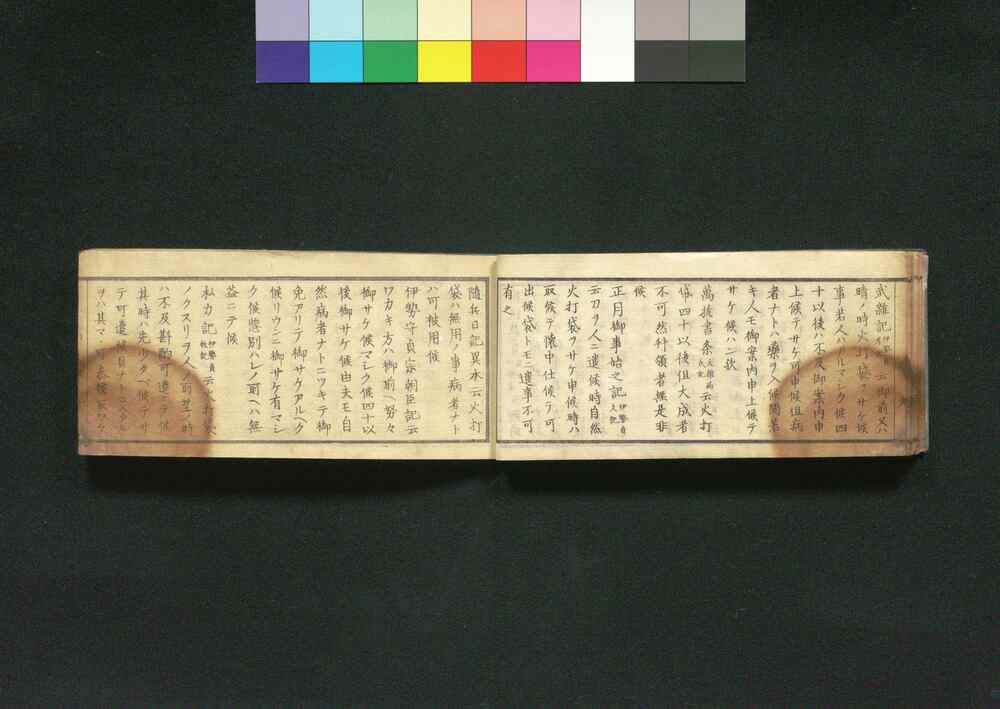 武雜記 云御前又ハ
時ノ時ケ火打袋ヲサケ候
事若人ハイルマシク候四
十以後ハ不及御案内申
上候テサケ可申候但病
者ナトハ藥ヲ入候間若
キ人モ御案内申上候テ
サケ候ハン歟
萬披書条々 云火打
袋四十以後但大成者
不可然件領者無是非
候
正月御事始之記 伊勢貞久記
云刀ヲ人ニ遣候時自然
火打袋ヲサケ申候時ハ
取候テ懷中仕候テ可
出候袋トモニ遣事不可
有之
隨兵日記異本云火打
袋ハ無用ノ事病者ナト
ハ可被用候
伊勢守貞宗朝臣記云
ワカキ方ハ御前ヘ努々
御サケ候マシク候四十以
後御サケ候由夫モ自
然病者ナトニツキテ御
免アリテ御サケアルヘク
候リウニ御サケ有マシ
ク候惣別ハレノ前ヘハ無
益ニテ候
私カ記 伊勢貞牧記 云火打袋
ノクスリヲ人ノ前望ノ時
ハ不及斟酌可遣ニテ候
其時ハ先少タベ候テサ
テ可遣候
ヲハ其マヽ